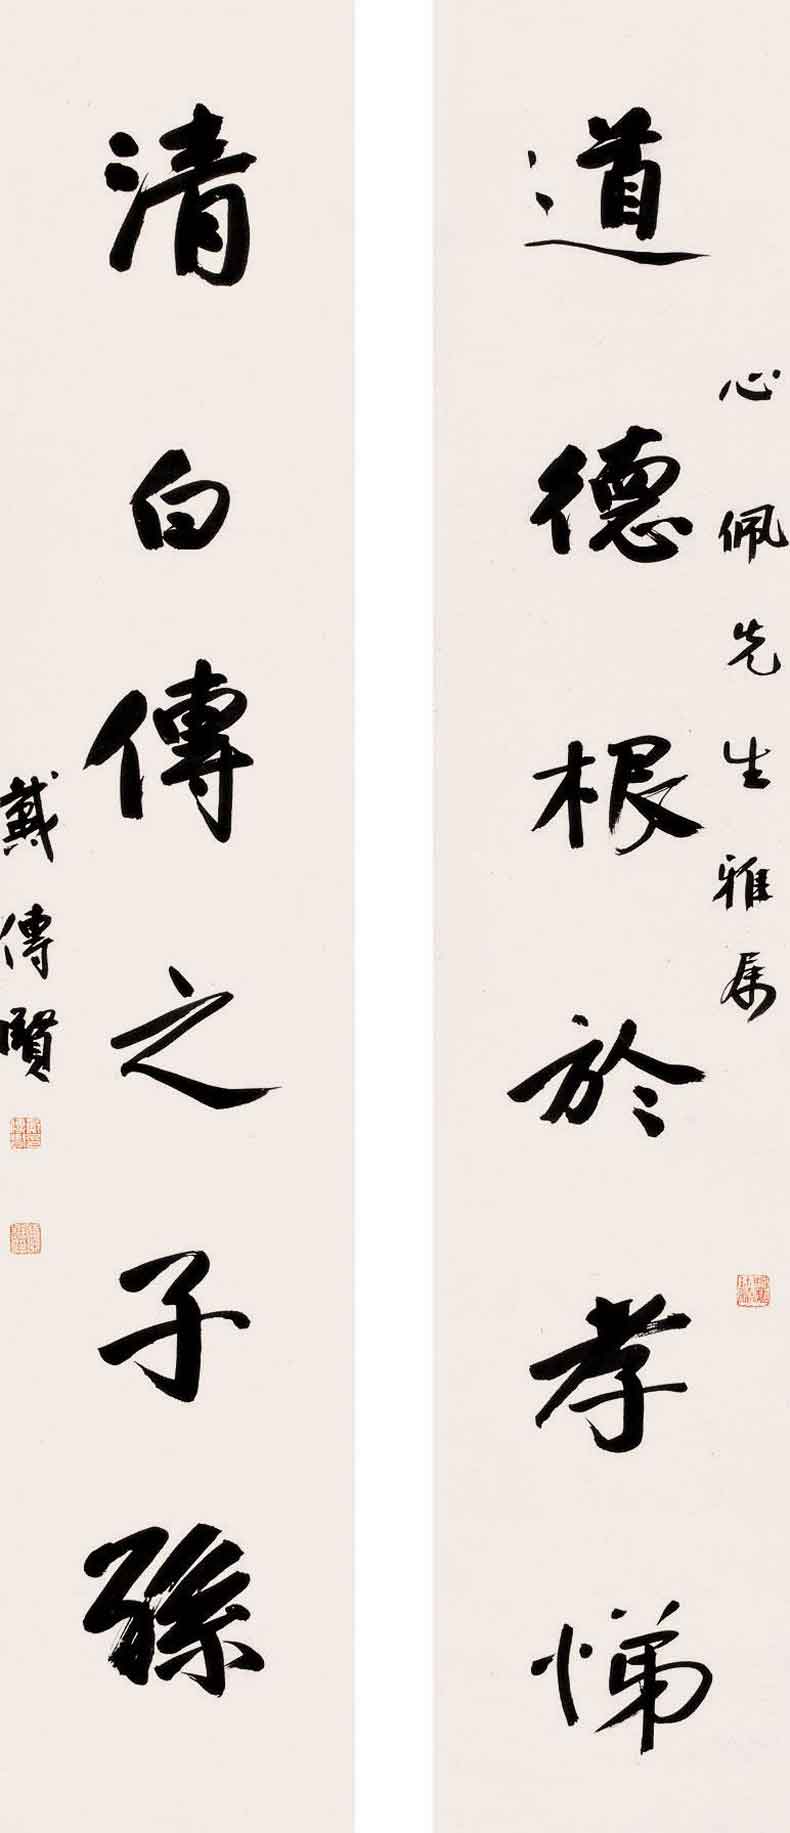 心佩先生雅属
道德根於孝悌
清白傳之子孫
戴傳賢